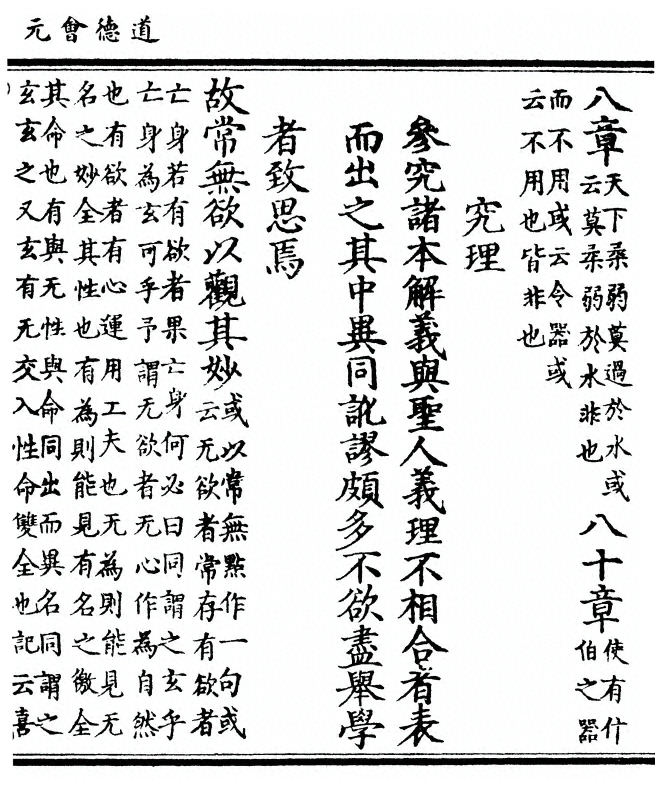 道德會元
八章天下柔弱莫過於水或云莫柔弱於水非也八十章使有什伯之器
而不用或云令器或
云不用也皆非也
究理
參究諸本解義與聖人義理不相合者表
而出之其中異同訛謬頗多不欲盡舉學
者致思焉
故常無欲以觀其妙或以常無點作一句或云无欲者常存有欲者
亡身若有欲者果亡身何必曰同謂之玄乎
亡身為玄可乎予謂无欲者无心作為自然
也有欲者有心運用工夫也无為則能見无
名之妙全其性也有為則能見有名之徼全
其命也有與无性與命同出而異名同謂之
玄玄之又玄有无交入性命雙全也記云喜